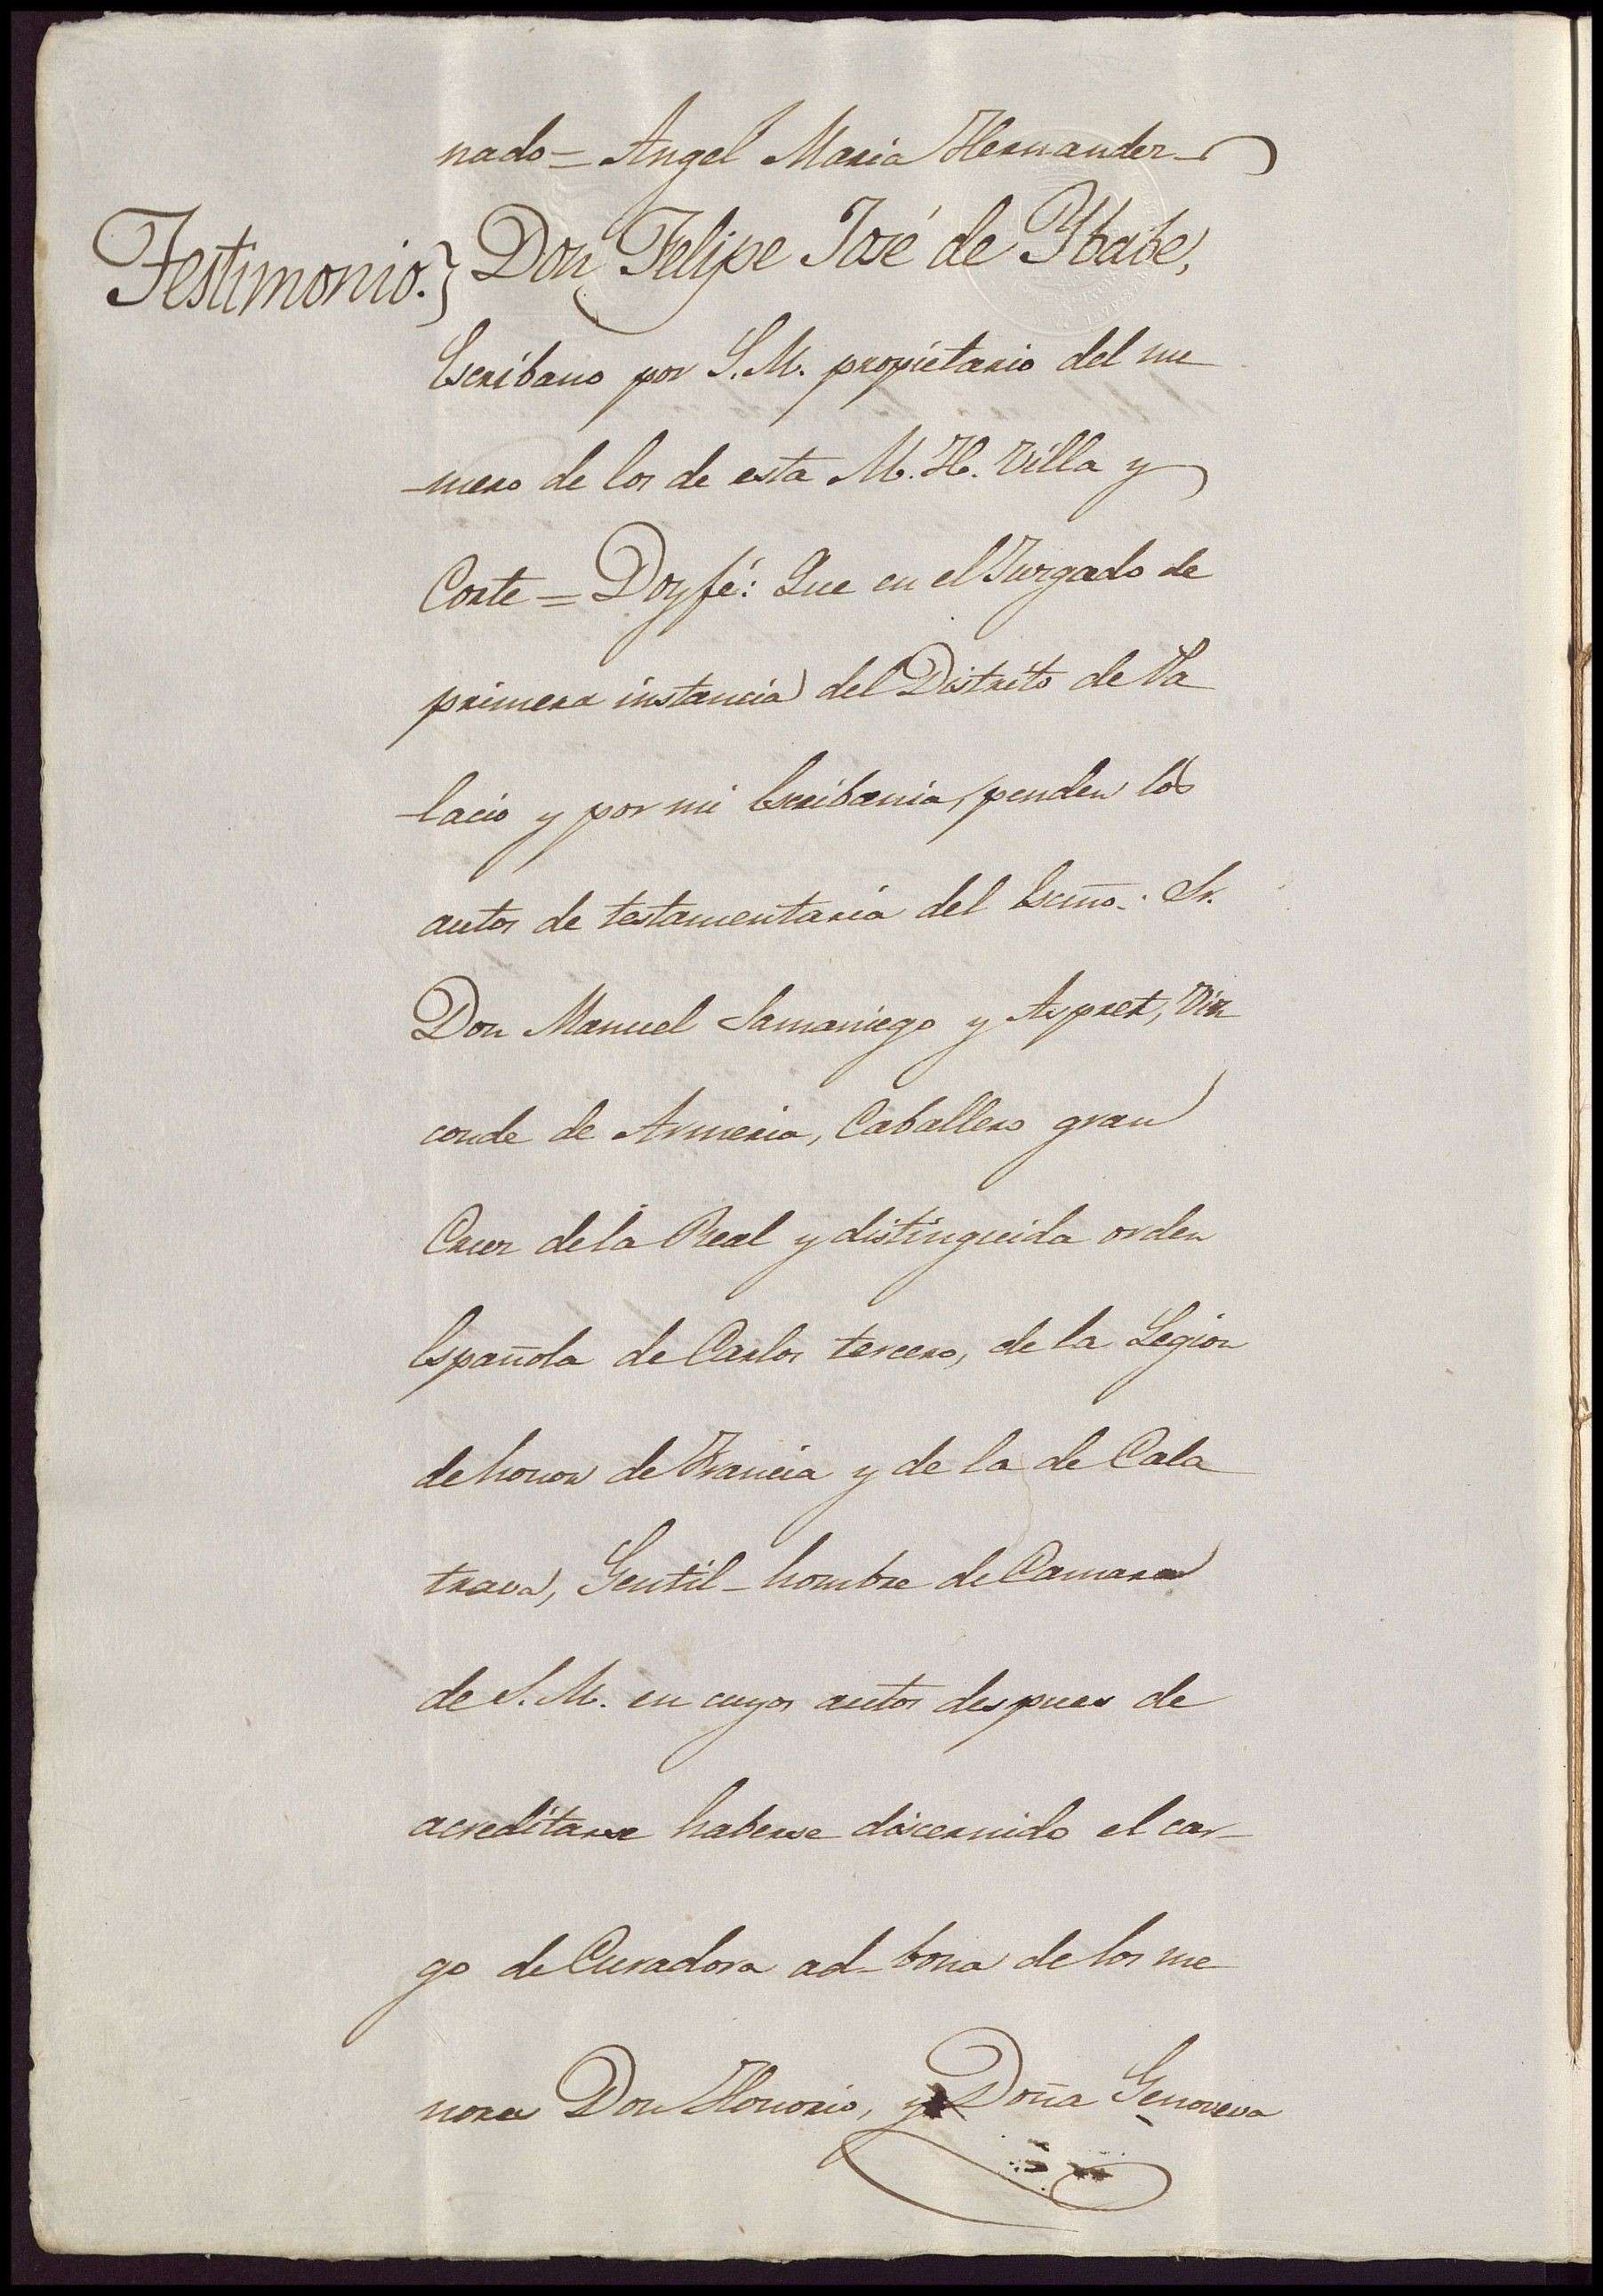 nado = Angel Maria Hernandez
Testimonio.} Don Felipe José de Ybabe,
Escribano por S.M. propietario del nu
-mero de los de esta M. H. Villa y
Corte = Doy fé: Que en el Juzgado de
primera instancia del Distrito de Pa
-lacio y por mi Escribania, penden los
autos de testamentaria del Escmo. Sr.
Don Manuel Samaniego y Asprer, Viz
conde de Armeria, Caballero gran
Cruz de la Real y distinguida orden
Española de Carlos tercero, de la Legion
de honor de Francia y de la de Cala
trava, Gentil-hombre de Camara
de S.M. en cuyos autos despues de
acreditarse haberse discernido el car-
go de Curadora ad-bona de los me
nores Don Honorio, y Doña Genoveva